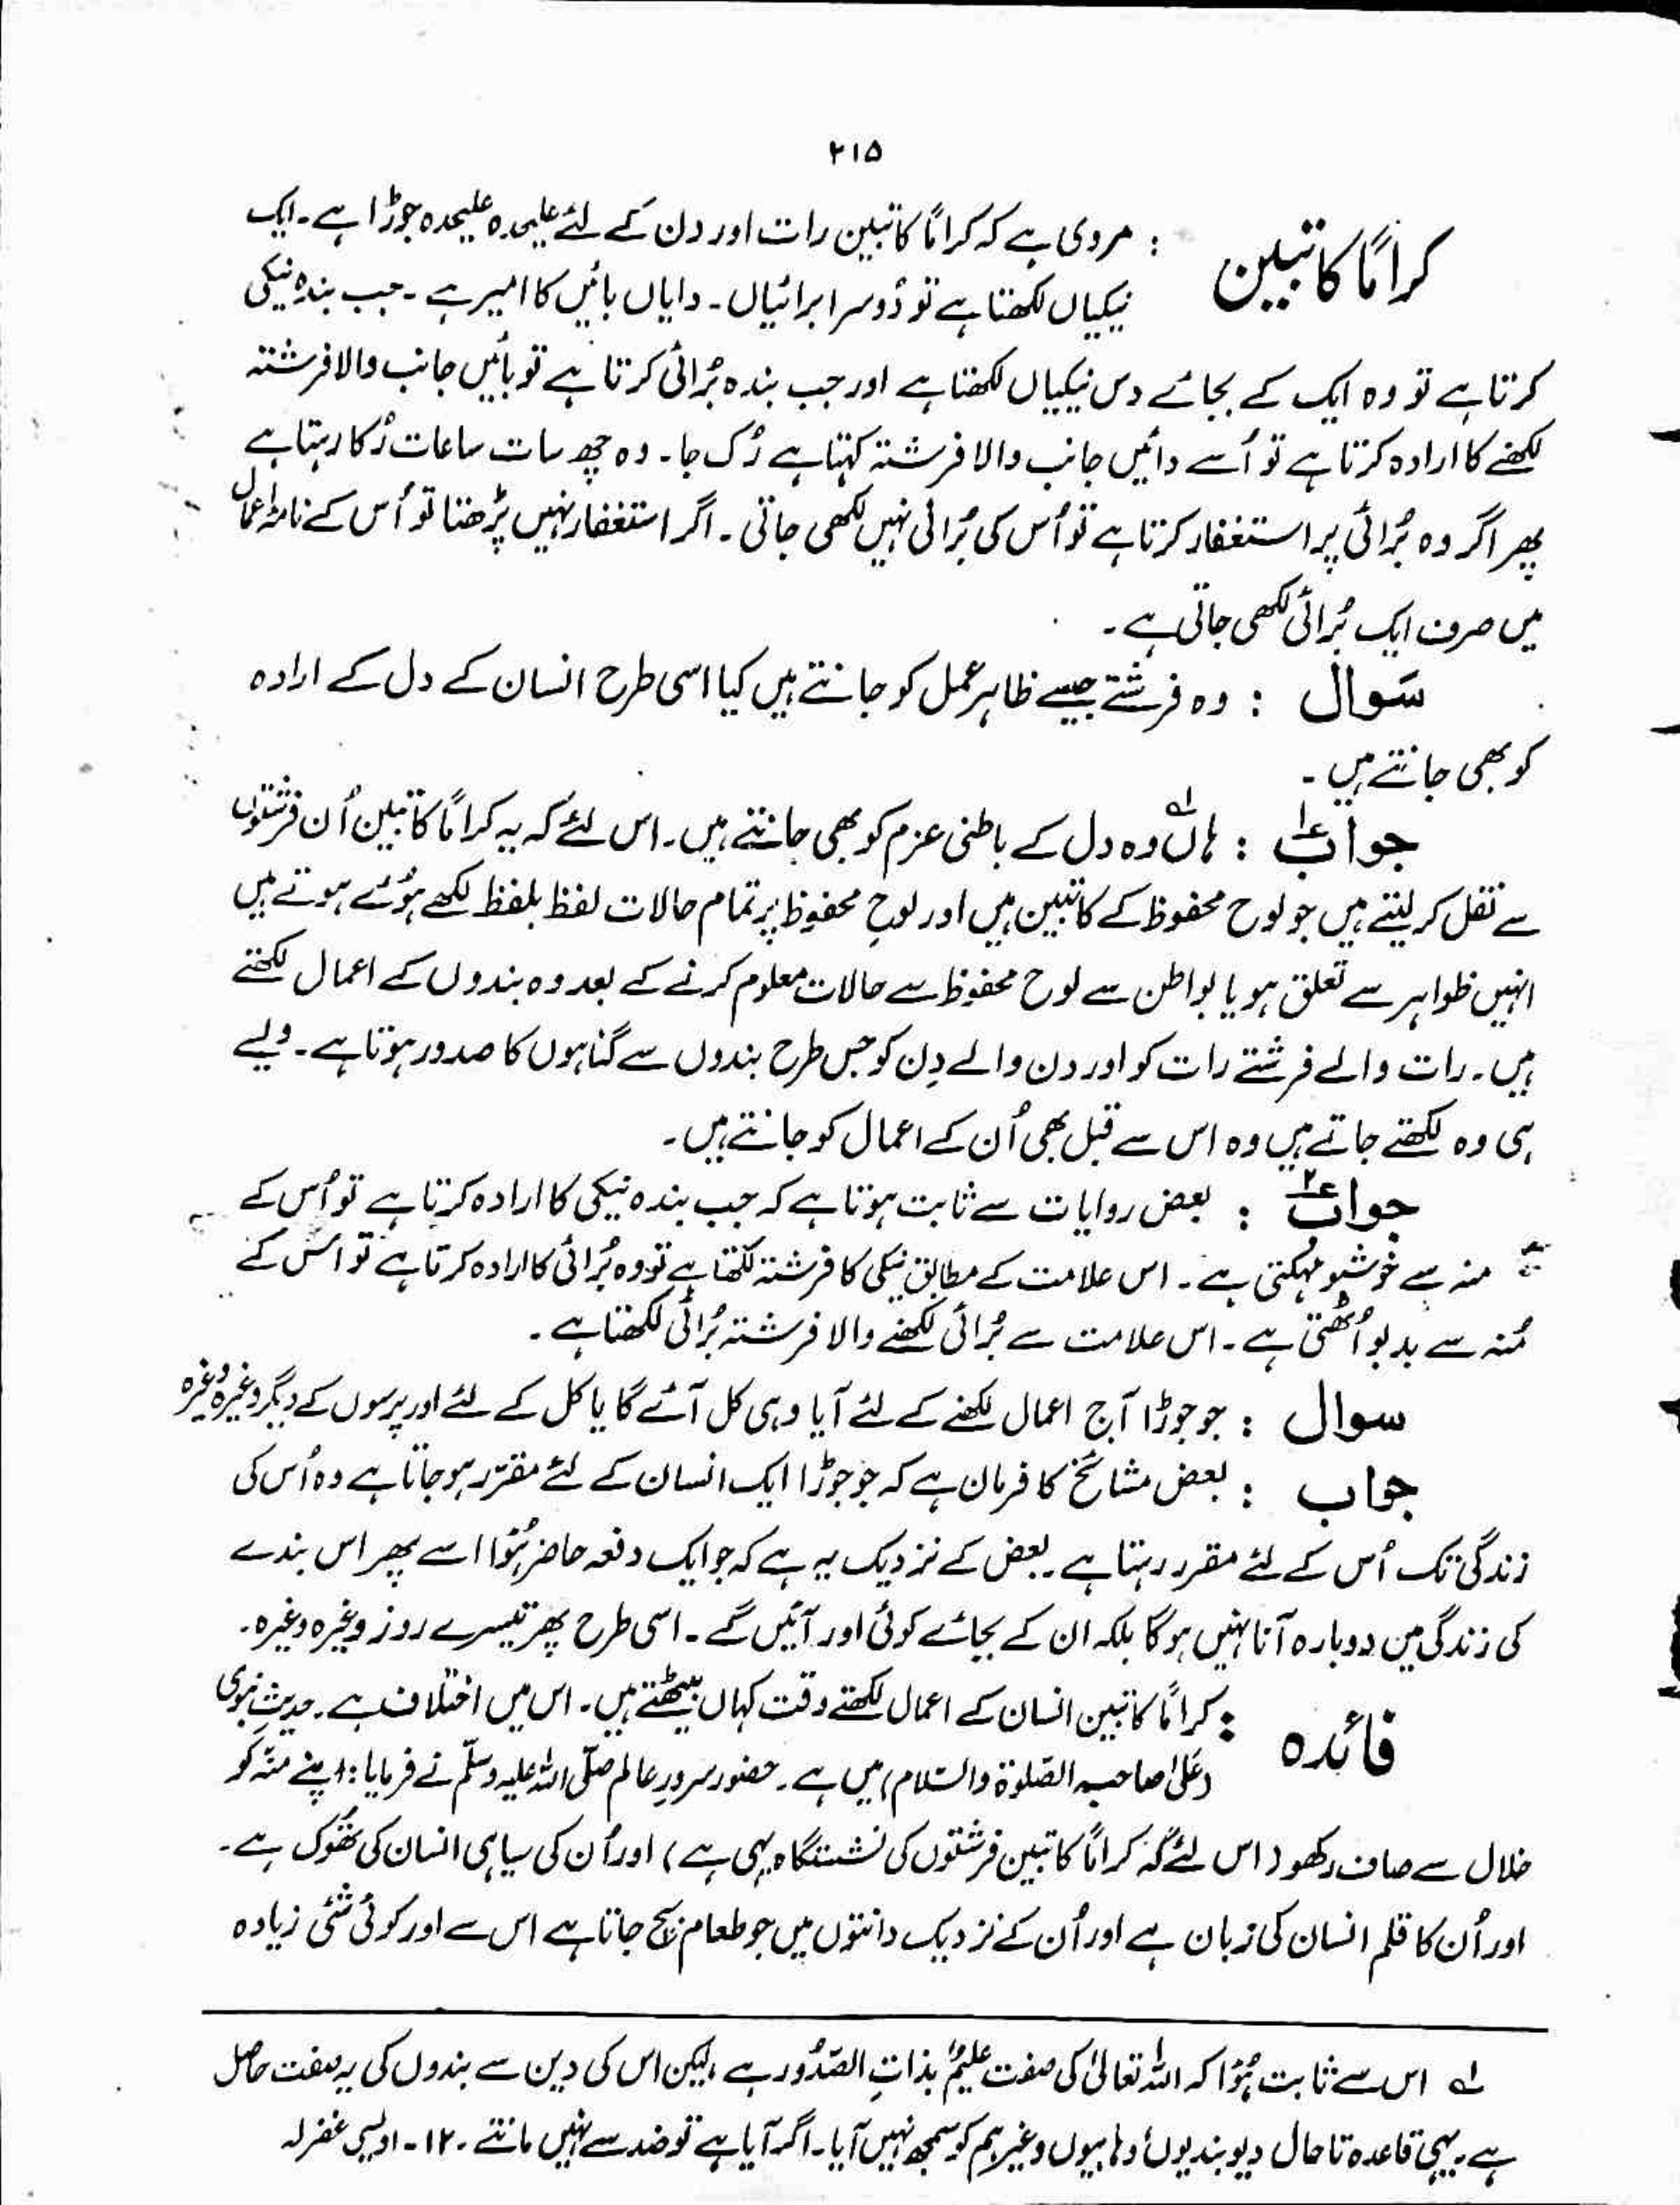 ۲۱۵
کراماً کاتبین : مروی ہے کہ کراماً کاتبین رات اور دن کے لئے علیحدہ علیحدہ جوڑا ہے۔ ایک
نیکیاں لکھتا ہے تو دُوسرا برائیاں۔ دایاں بائیں کا امیر ہے۔ جب بندہ نیکی
کرتا ہے تو وہ ایک کے بجائے دس نیکیاں لکھتا ہے اور جب بندہ بُرائی کرتا ہے تو بائیں جانب والا فرشتہ
لکھنے کا ارادہ کرتا ہے تو اُسے دائیں جانب والا فرشتہ کہتا ہے رُک جا۔ وہ چھ سات ساعات رُکا رہتا ہے
پھر اگر وہ بُرائی پر استغفار کرتا ہے تو اُس کی بُرائی نہیں لکھی جاتی۔ اگر استغفار نہیں پڑھتا تو اُس کے نامۂ اعمال
میں صرف ایک بُرائی لکھی جاتی ہے۔
سَوال : وہ فرشتے جیسے ظاہر عمل کو جانتے ہیں کیا اسی طرح انسان کے دل کے ارادہ
کو بھی جانتے ہیں۔
جواب ۱ : ہاں لہ وہ دل کے باطنی عزم کو بھی جانتے ہیں۔ اس لئے کہ یہ کراماً کاتبین اُن فرشتوں
سے نقل کر لیتے ہیں جو لوح محفوظ کے کاتبین ہیں اور لوحِ محفوظ پر تمام حالات لفظ بلفظ لکھے ہوئے ہوتے ہیں
انہیں ظواہر سے تعلق ہو یا بواطن سے لوح محفوظ سے حالات معلوم کرنے کے بعد وہ بندوں کے اعمال لکھتے
ہیں۔ رات والے فرشتے رات کو اور دن والے دِن کو جس طرح بندوں سے گناہوں کا صدور ہوتا ہے۔ ویسے
ہی وہ لکھتے جاتے ہیں وہ اس سے قبل بھی اُن کے اعمال کو جانتے ہیں۔
جواب ۲ : بعض روایات سے ثابت ہوتا ہے کہ جب بندہ نیکی کا ارادہ کرتا ہے تو اُس کے
منہ سے خوشبو مہکتی ہے۔ اس علامت کے مطابق نیکی کا فرشتہ لکھتا ہے تو وہ بُرائی کا ارادہ کرتا ہے تو اُس کے
مُنہ سے بدبو اُٹھتی ہے۔ اس علامت سے بُرائی لکھنے والا فرشتہ بُرائی لکھتا ہے۔
سوال : جو جوڑا آج اعمال لکھنے کے لئے آیا وہی کل آئے گا یا کل کے لئے اور پرسوں کے دیگر وغیرہ وغیرہ
جواب : بعض مشائخ کا فرمان ہے کہ جو جوڑا ایک انسان کے لئے مقرّر ہو جاتا ہے وہ اُس کی
زندگی تک اُس کے لئے مقرر رہتا ہے۔ بعض کے نزدیک یہ ہے کہ جو ایک دفعہ حاضر ہُوا اسے پھر اس بندے
کی زندگی میں دوبارہ آنا نہیں ہوگا بلکہ ان کے بجائے کوئی اور آئیں گے۔ اسی طرح پھر تیسرے روز وغیرہ وغیرہ۔
فائدہ : کراماً کاتبین انسان کے اعمال لکھتے وقت کہاں بیٹھتے ہیں۔ اس میں اختلاف ہے۔ حدیثِ نبوی
(علیٰ صاحبہ الصّلوٰۃ والسّلام) میں ہے۔ حضور سرورِ عالم صلّی اللہ علیہ وسلّم نے فرمایا: اپنے منہ کو
خلال سے صاف رکھو (اس لئے کہ کراماً کاتبین فرشتوں کی نشستگاہ یہی ہے) اور اُن کی سیاہی انسان کی تھُوک ہے۔
اور اُن کا قلم انسان کی زبان ہے اور اُن کے نزدیک دانتوں میں جو طعام بچ جاتا ہے اس سے اور کوئی شئی زیادہ
لہ اس سے ثابت ہُوا کہ اللہ تعالیٰ کی صفت علیمٌ بذاتِ الصّدُور ہے لیکن اس کی دین سے بندوں کی یہ صفت حاصل
ہے۔ یہی قاعدہ تاحال دیوبندیوں وہابیوں وغیرہم کو سمجھ نہیں آیا۔ اگر آیا ہے تو ضد سے نہیں مانتے۔ ۱۲۔ اویسی غفرلہ